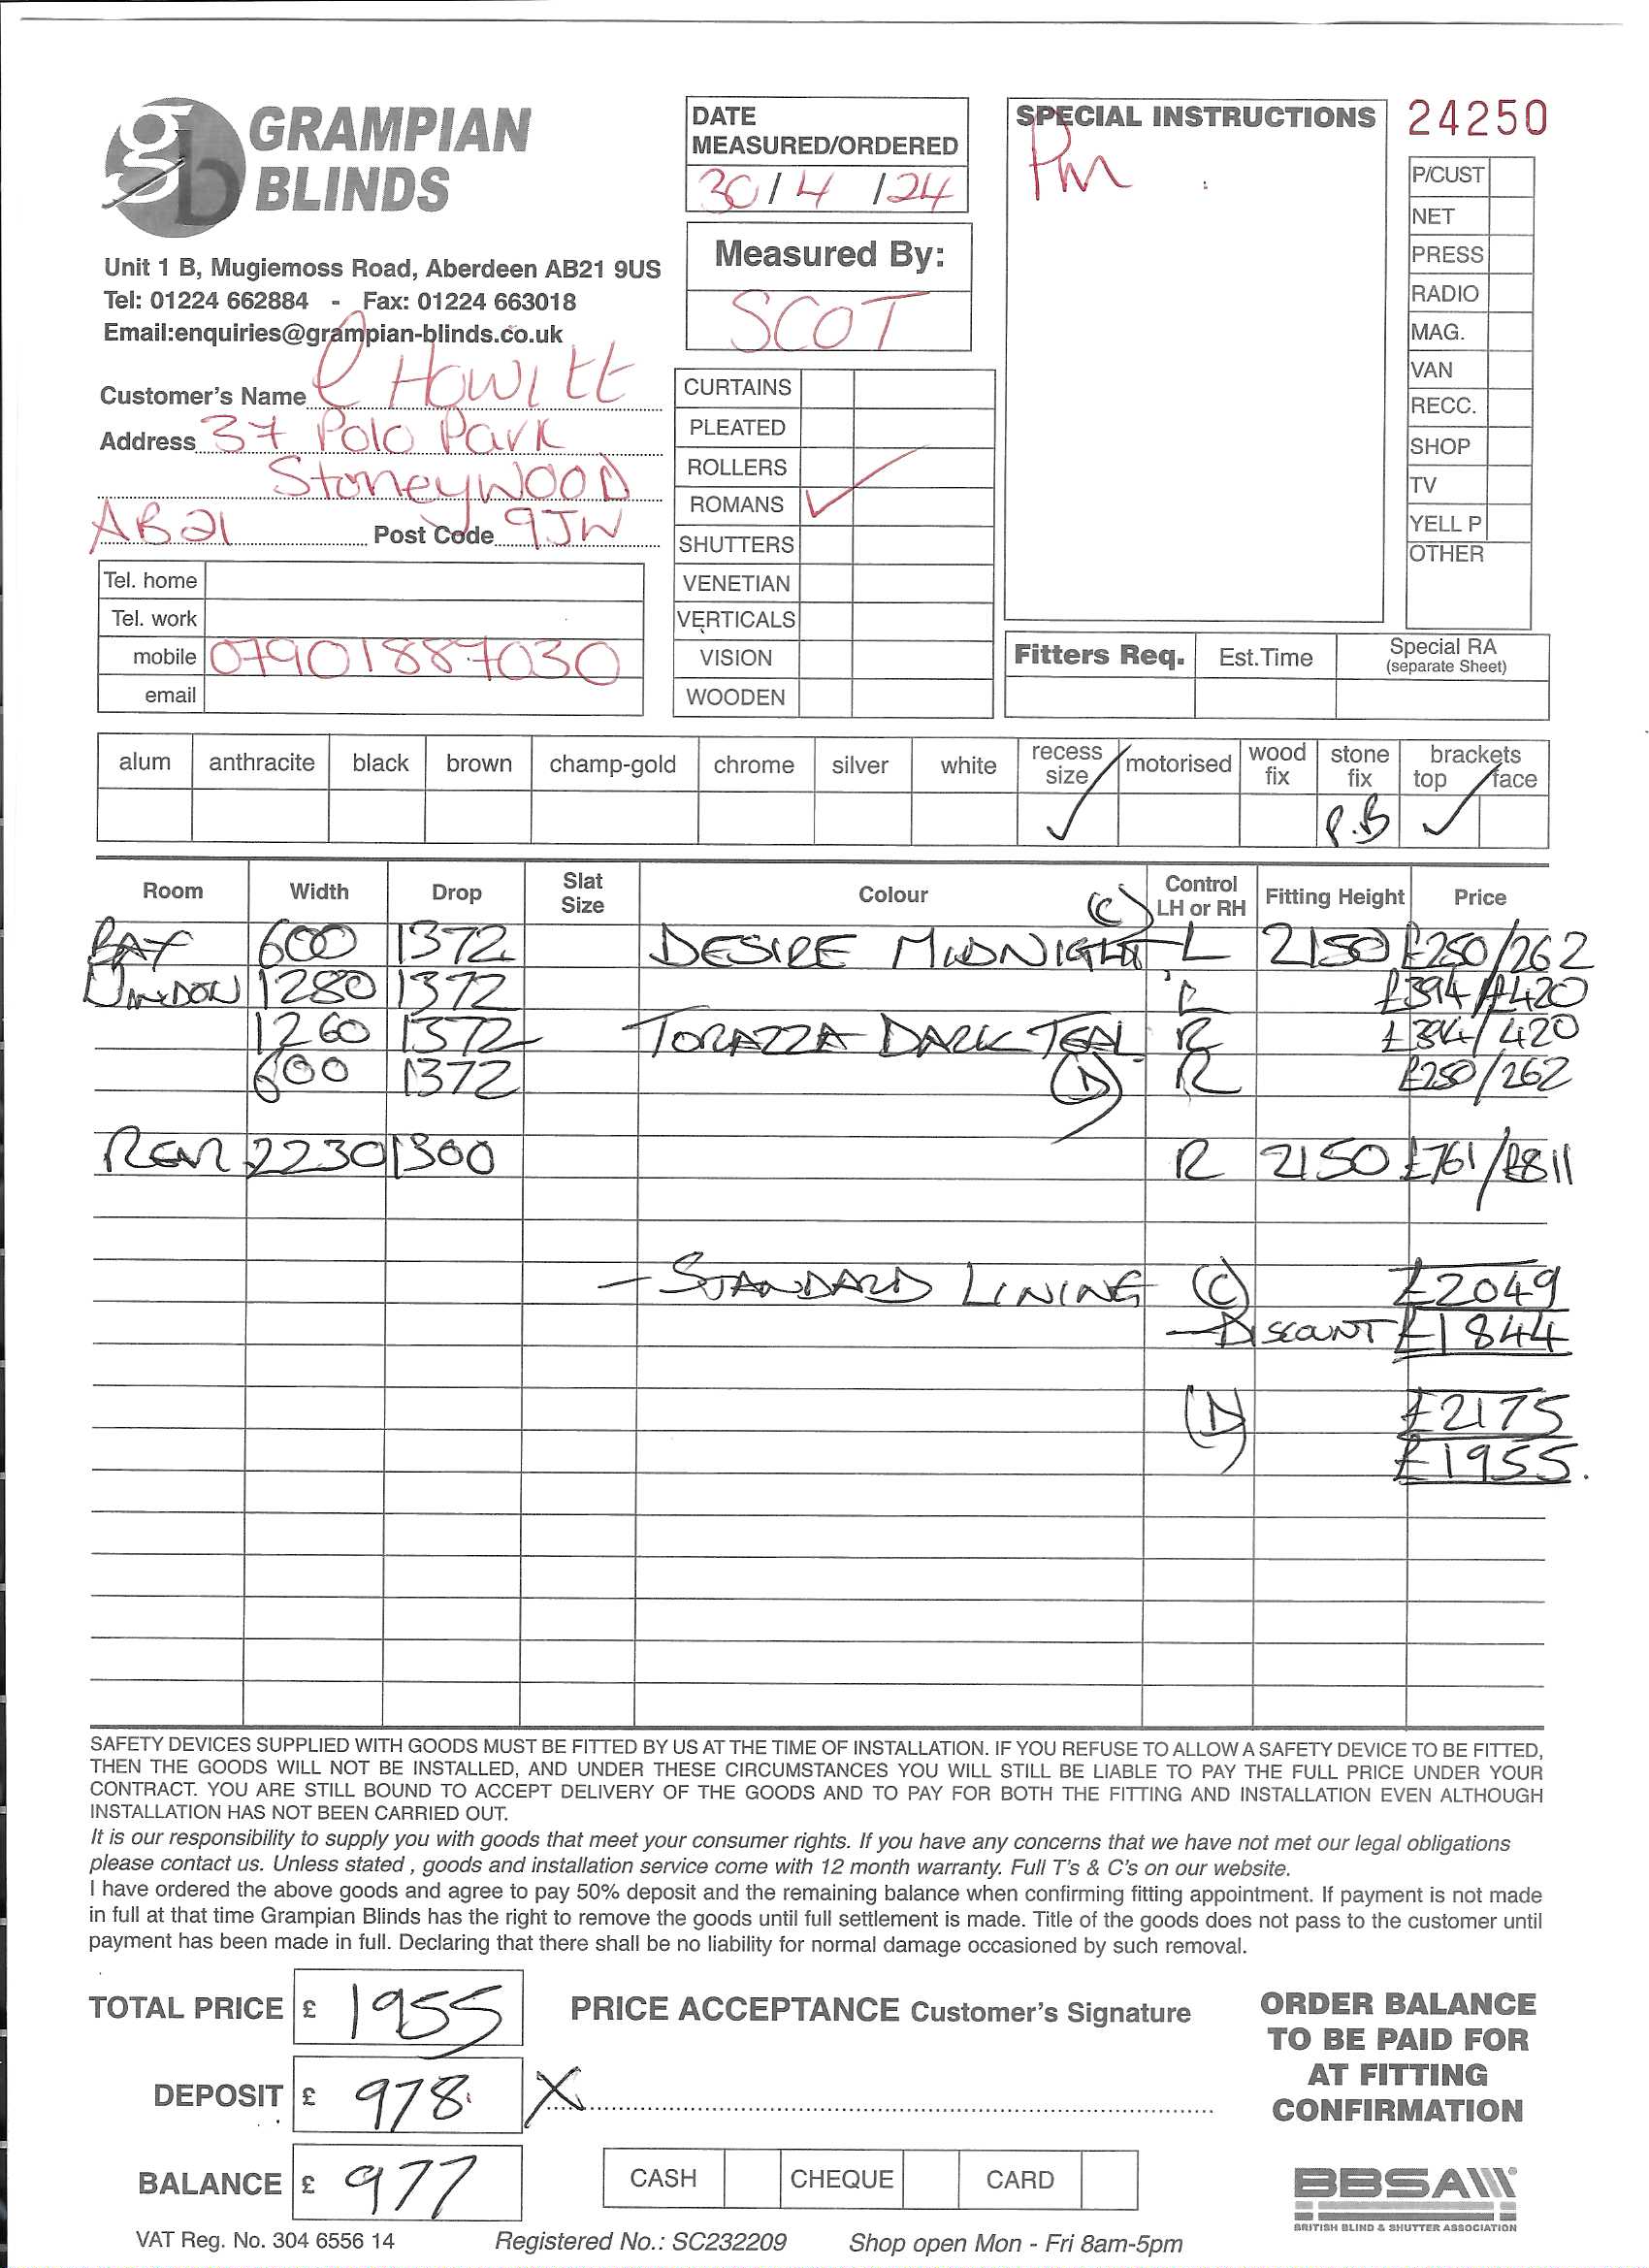 GRAMPIAN
BLINDS
Unit 1 B, Mugiemoss Road, Aberdeen AB21 9US
Tel: 01224 662884 - Fax: 01224 663018
Email:enquiries@grampian-blinds.co.uk
Customer's Name C Howitt
Address 37 Polo Park
Stoneywood
AB21 Post Code 9JW
Tel. home
Tel. work
mobile 07901887030
email
DATE
MEASURED/ORDERED
30/4/24
Measured By:
SCOT
CURTAINS
PLEATED
ROLLERS
ROMANS ✓
SHUTTERS
VENETIAN
VERTICALS
VISION
WOODEN
SPECIAL INSTRUCTIONS
Pm
24250
P/CUST
NET
PRESS
RADIO
MAG.
VAN
RECC.
SHOP
TV
YELL P
OTHER
Fitters Req. Est.Time Special RA
(separate Sheet)
alum anthracite black brown champ-gold chrome silver white recess size motorised wood fix stone fix brackets top face
✓ P.B ✓
Room Width Drop Slat Size Colour Control LH or RH Fitting Height Price
BAY 600 1372 DESIRE MIDNIGHT (C) L 2150 £250/262
WINDOW 1280 1372 L £394/£420
1260 1372 TORAZZA DARK TEAL R £394/420
600 1372 (D) R £250/262
REAR 2230 1300 R 2150 £761/£811
- STANDARD LINING (C) £2049
- DISCOUNT £1844
(D) £2175
£1955.
SAFETY DEVICES SUPPLIED WITH GOODS MUST BE FITTED BY US AT THE TIME OF INSTALLATION. IF YOU REFUSE TO ALLOW A SAFETY DEVICE TO BE FITTED,
THEN THE GOODS WILL NOT BE INSTALLED, AND UNDER THESE CIRCUMSTANCES YOU WILL STILL BE LIABLE TO PAY THE FULL PRICE UNDER YOUR
CONTRACT. YOU ARE STILL BOUND TO ACCEPT DELIVERY OF THE GOODS AND TO PAY FOR BOTH THE FITTING AND INSTALLATION EVEN ALTHOUGH
INSTALLATION HAS NOT BEEN CARRIED OUT.
It is our responsibility to supply you with goods that meet your consumer rights. If you have any concerns that we have not met our legal obligations
please contact us. Unless stated , goods and installation service come with 12 month warranty. Full T's & C's on our website.
I have ordered the above goods and agree to pay 50% deposit and the remaining balance when confirming fitting appointment. If payment is not made
in full at that time Grampian Blinds has the right to remove the goods until full settlement is made. Title of the goods does not pass to the customer until
payment has been made in full. Declaring that there shall be no liability for normal damage occasioned by such removal.
TOTAL PRICE £ 1955
DEPOSIT £ 978
BALANCE £ 977
PRICE ACCEPTANCE Customer's Signature
X
CASH CHEQUE CARD
ORDER BALANCE
TO BE PAID FOR
AT FITTING
CONFIRMATION
BBSA
BRITISH BLIND & SHUTTER ASSOCIATION
VAT Reg. No. 304 6556 14 Registered No.: SC232209 Shop open Mon - Fri 8am-5pm